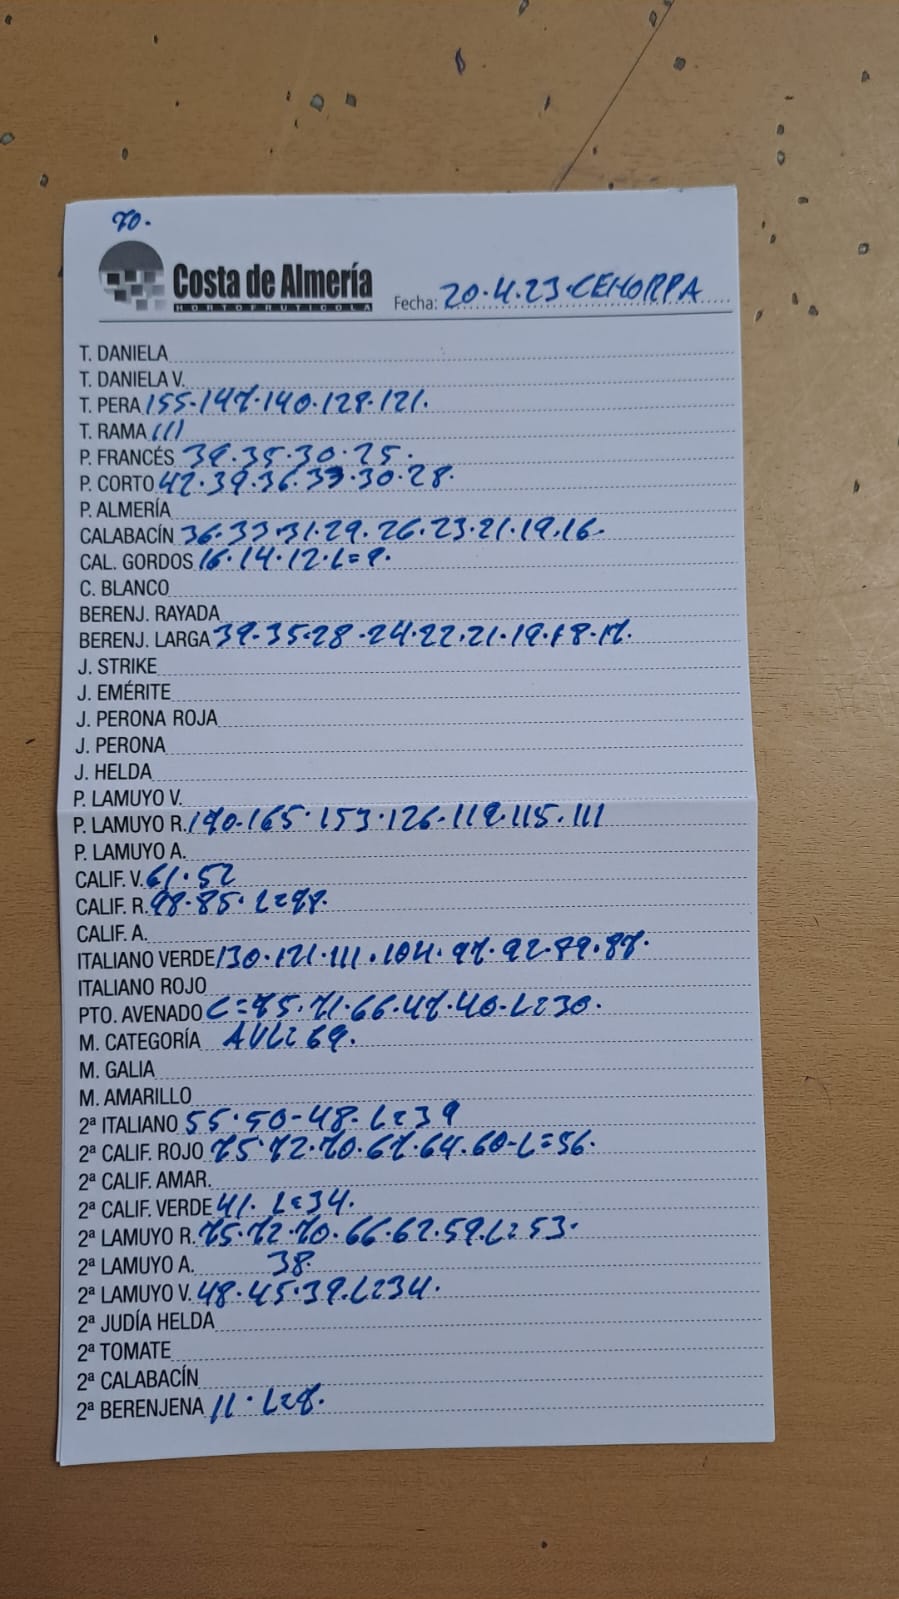 70.
Costa de Almería
HORTOFRUTICOLA
Fecha: 20.4.23.CEHORPA
T. DANIELA
T. DANIELA V.
T. PERA 155.147.140.128.121.
T. RAMA 111
P. FRANCÉS 39.35.30.25.
P. CORTO 42.39.36.33.30.28.
P. ALMERÍA
CALABACÍN 36.33.31.29.26.23.21.19.16.
CAL. GORDOS 16.14.12.L=9.
C. BLANCO
BERENJ. RAYADA
BERENJ. LARGA 39.35.28.24.22.21.19.18.17.
J. STRIKE
J. EMÉRITE
J. PERONA ROJA
J. PERONA
J. HELDA
P. LAMUYO V.
P. LAMUYO R. 170.165.153.126.119.115.111
P. LAMUYO A.
CALIF. V. 61.52
CALIF. R. 98.85.L=78.
CALIF. A.
ITALIANO VERDE 130.121.111.104.97.92.89.87.
ITALIANO ROJO
PTO. AVENADO C=75.71.66.47.40-L=30.
M. CATEGORÍA AVL=69.
M. GALIA
M. AMARILLO
2ª ITALIANO 55.50-48.L=39
2ª CALIF. ROJO 75.72.70.67.64.60-L=56.
2ª CALIF. AMAR.
2ª CALIF. VERDE 41. L=34.
2ª LAMUYO R. 75.72.70.66.62.59.L=53.
2ª LAMUYO A. 38.
2ª LAMUYO V. 48.45.39.L=34.
2ª JUDÍA HELDA
2ª TOMATE
2ª CALABACÍN
2ª BERENJENA 11. L=8.